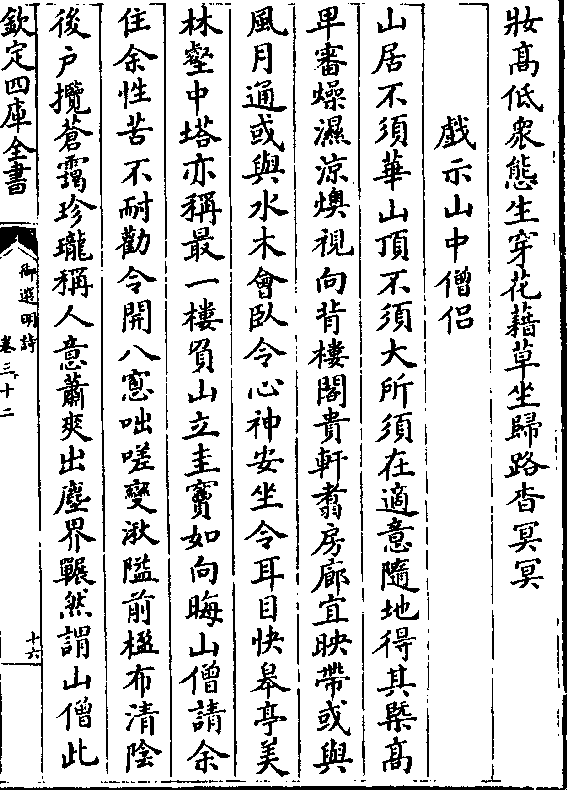 妝高低衆態生穿花藉草坐歸路杳冥冥
戲示山中僧侶
山居不須華山頂不須大所須在適意隨地得其槩高
卑審燥濕涼燠視向背樓閣貴軒翥房廊宜映帶或與
風月通或與水木會臥令心神安坐令耳目快皋亭美
林壑中塔亦稱最一樓負山立圭竇如向晦山僧請余
住余性苦不耐勸令開八窻咄嗟變湫隘前楹布清陰
後戶攬蒼靄珍瓏稱人意蕭爽出塵界囅然謂山僧此
欽定四庫全書
御選明詩
卷三十二
十六